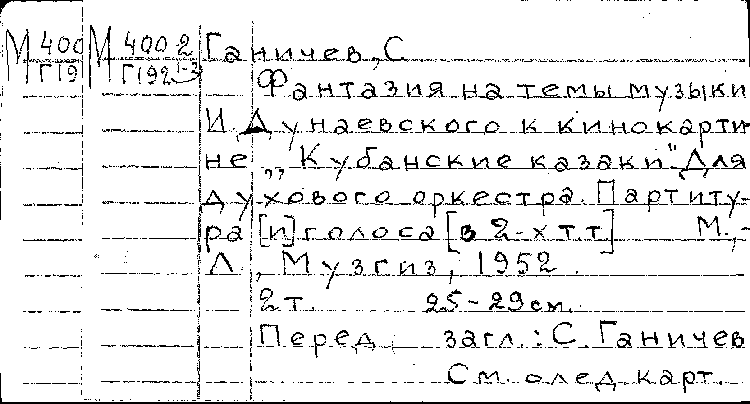 М 400 М 400 2 Ганичев, С.
Г19 Г192 1-2 Фантазия на темы музыки
И. Дунаевского к кинокарти
не „Кубанские казаки". Для
духового оркестра. Партиту-
ра [и] голоса [в 2-х т.т] М.,-
Л., Музгиз, 1952.
2 т. 25-29 см.
Перед загл.: С. Ганичев
См. след. карт.